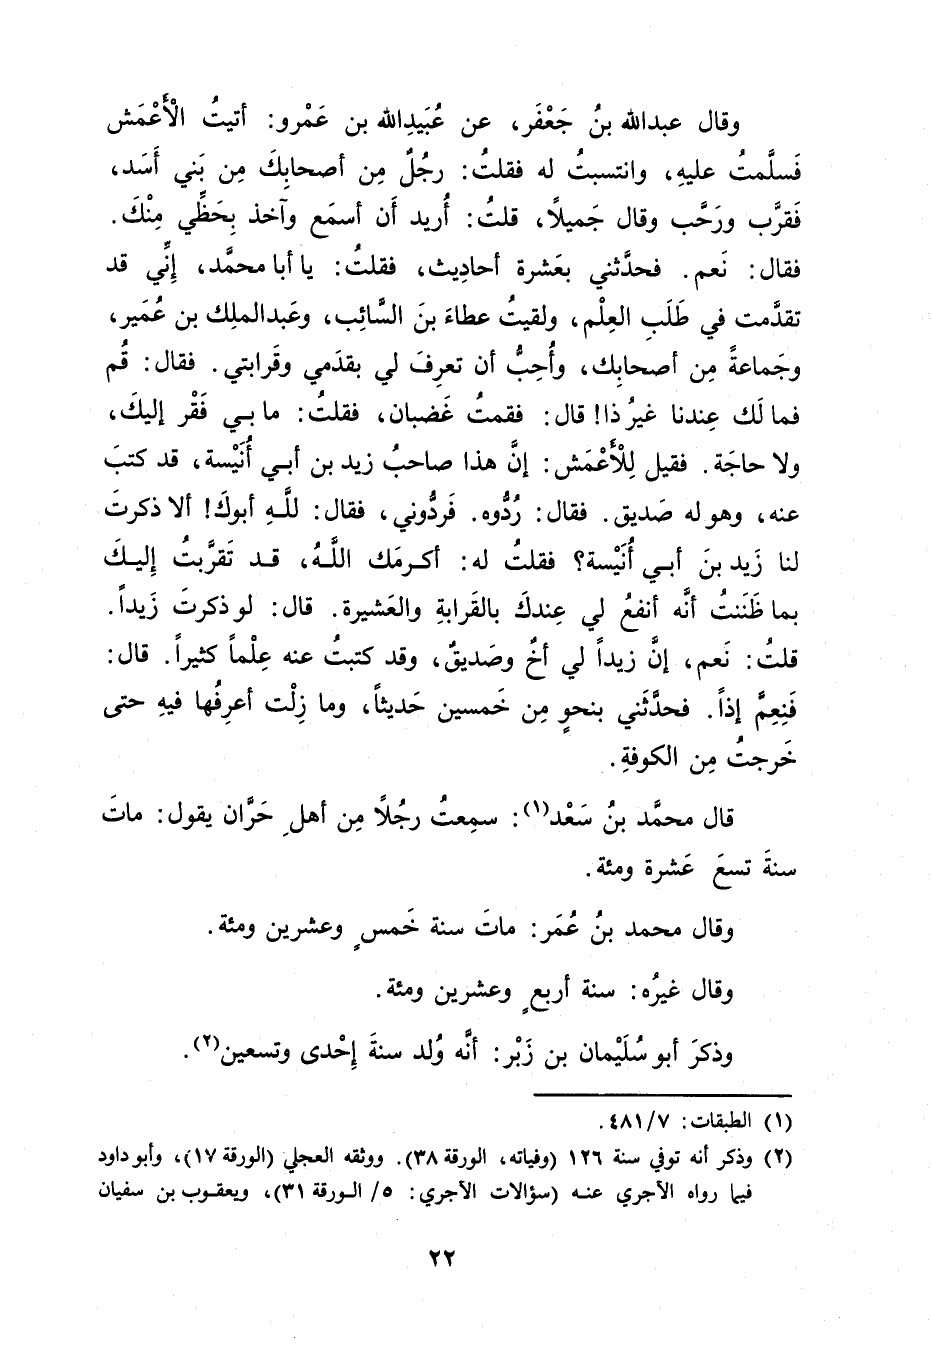 وقال عبدالله بنُ جَعْفَر، عن عُبَيدِالله بن عَمْرو: أتيتُ الْأَعْمَش
فَسلَّمتُ عليهِ، وانتسبتُ له فقلتُ: رجُلٌ مِن أصحابِكَ مِن بَني أَسَد،
فَقرَّب ورَحَّب وقال جَميلًا، قلتُ: أُريد أَن أسمَع وآخذ بِحَظِّي مِنْكَ.
فقال: نَعم. فحدَّثني بعَشرة أحادِيث، فقلتُ: يا أبا محمَّد، إنِّي قد
تقدَّمت في طَلَبِ العِلْم، ولقيتُ عطاءَ بنَ السَّائِب، وعَبدالملِك بن عُمَير،
وجَماعةً مِن أصحابِك، وأُحِبُّ أن تعرِفَ لي بقدَمي وقَرابتي. فقال: قُم
فما لَك عِندنا غيرُ ذا! قال: فقمتُ غَضبان، فقلتُ: ما بي فَقْر إليكَ،
ولا حاجَة. فقيل لِلْأَعْمَش: إنَّ هذا صاحبُ زيد بن أبي أُنَيْسة، قد كتبَ
عنه، وهو له صَديق. فقال: رُدُّوه. فَردُّوني، فقال: للَّهِ أبوكَ! ألا ذكرتَ
لنا زَيد بنَ أبي أُنَيْسة؟ فقلتُ له: أكرمَك اللَّهُ، قد تَقرَّبتُ إليكَ
بما ظَنَنتُ أنَّه أنفعُ لي عِندكَ بالقَرابةِ والعَشيرة. قال: لو ذكرتَ زَيداً.
قلتُ: نَعم، إنَّ زيداً لي أخٌ وصَديقٌ، وقد كتبتُ عنه عِلْماً كثيراً. قال:
فَنِعِمَّ إذاً. فحدَّثَني بنحوٍ مِن خَمسين حَديثاً، وما زِلْت أعرِفُها فيهِ حتى
خَرجتُ مِن الكوفةِ.
قال محمَّد بنُ سَعْد(١): سمِعتُ رجُلًا مِن أهلِ حَرَّان يقول: ماتَ
سنةَ تسعَ عَشرة ومئة.
وقال محمد بنُ عُمَر: ماتَ سنة خَمسٍ وعشرين ومئة.
وقال غيرُه: سنة أربعٍ وعشرين ومئة.
وذكرَ أبو سُلَيْمان بن زَبْر: أنَّه وُلد سنةَ إحْدى وتسعين(٢).
(١) الطبقات: ٧/ ٤٨١.
(٢) وذكر أنه توفي سنة ١٢٦ (وفياته، الورقة ٣٨). ووثقه العجلي (الورقة ١٧)، وأبو داود
فيما رواه الآجري عنه (سؤالات الآجري: ٥/ الورقة ٣١)، ويعقوب بن سفيان
٢٢